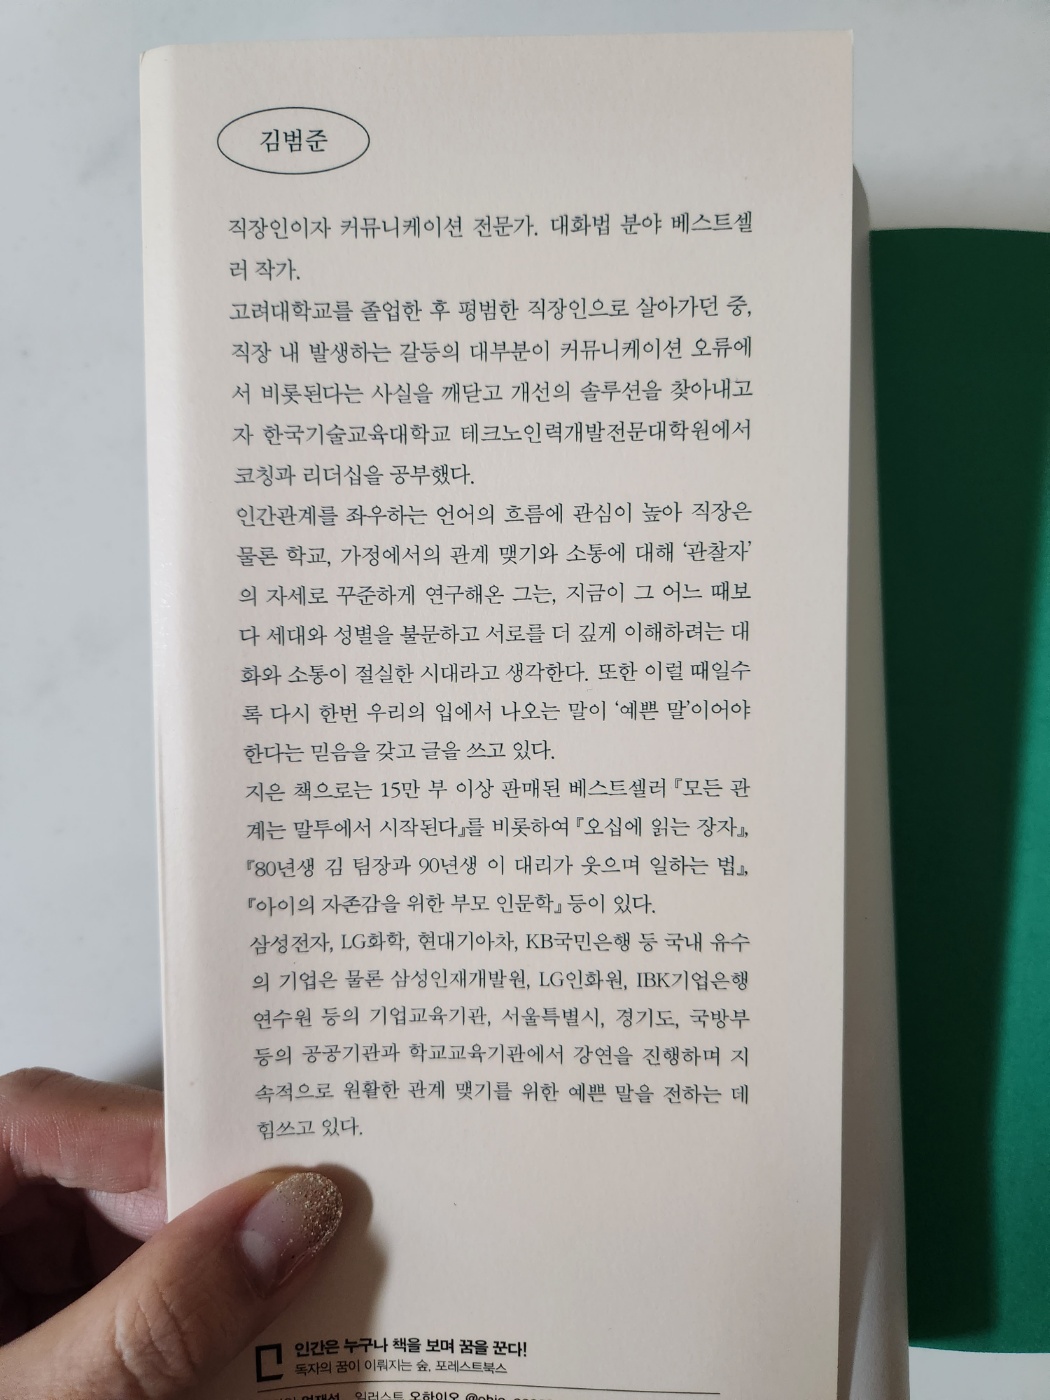 김범준
직장인이자 커뮤니케이션 전문가. 대화법 분야 베스트셀
러 작가.
고려대학교를 졸업한 후 평범한 직장인으로 살아가던 중,
직장 내 발생하는 갈등의 대부분이 커뮤니케이션 오류에
서 비롯된다는 사실을 깨닫고 개선의 솔루션을 찾아내고
자 한국기술교육대학교 테크노인력개발전문대학원에서
코칭과 리더십을 공부했다.
인간관계를 좌우하는 언어의 흐름에 관심이 높아 직장은
물론 학교, 가정에서의 관계 맺기와 소통에 대해 ‘관찰자’
의 자세로 꾸준하게 연구해온 그는, 지금이 그 어느 때보
다 세대와 성별을 불문하고 서로를 더 깊게 이해하려는 대
화와 소통이 절실한 시대라고 생각한다. 또한 이럴 때일수
록 다시 한번 우리의 입에서 나오는 말이 ‘예쁜 말’이어야
한다는 믿음을 갖고 글을 쓰고 있다.
지은 책으로는 15만 부 이상 판매된 베스트셀러 『모든 관
계는 말투에서 시작된다』를 비롯하여 『오십에 읽는 장자』,
『80년생 김 팀장과 90년생 이 대리가 웃으며 일하는 법』,
『아이의 자존감을 위한 부모 인문학』 등이 있다.
삼성전자, LG화학, 현대기아차, KB국민은행 등 국내 유수
의 기업은 물론 삼성인재개발원, LG인화원, IBK기업은행
연수원 등의 기업교육기관, 서울특별시, 경기도, 국방부
등의 공공기관과 학교교육기관에서 강연을 진행하며 지
속적으로 원활한 관계 맺기를 위한 예쁜 말을 전하는 데
힘쓰고 있다.
인간은 누구나 책을 보며 꿈을 꾼다!
독자의 꿈이 이뤄지는 숲, 포레스트북스
일러스트